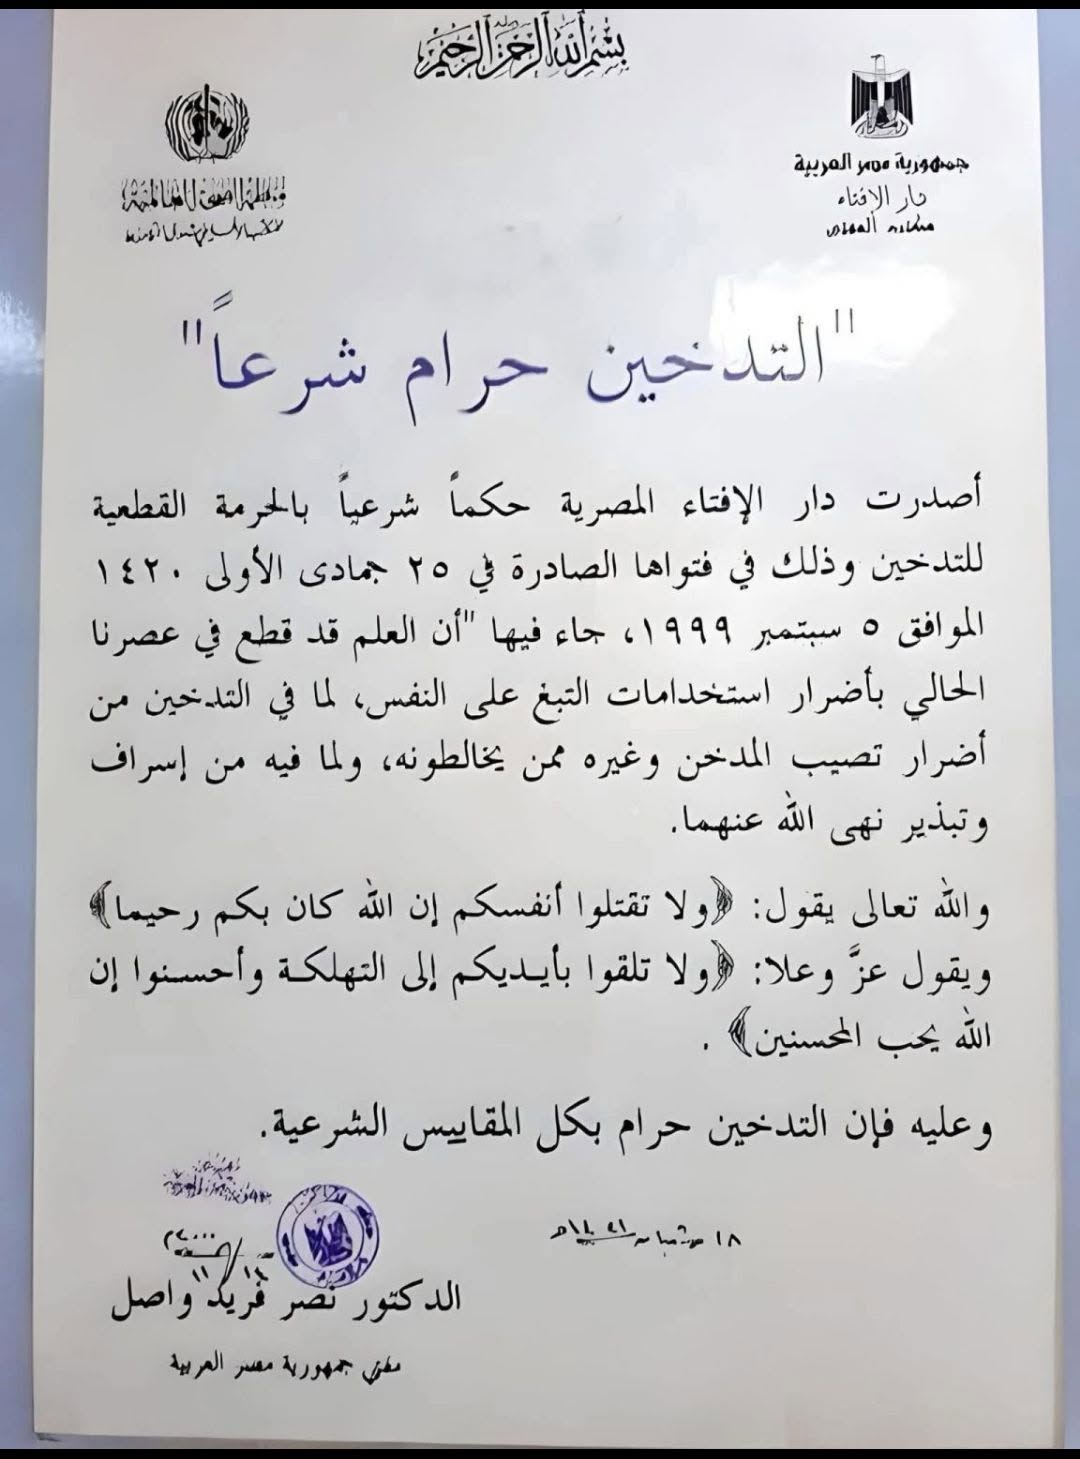 بسم الله الرحمن الرحيم
جمهورية مصر العربية
دار الإفتاء
"التدخين حرام شرعاً"
أصدرت دار الإفتاء المصرية حكماً شرعياً بالحرمة القطعية
للتدخين وذلك في فتواها الصادرة في ٢٥ جمادى الأولى ١٤٢٠
الموافق ٥ سبتمبر ١٩٩٩، جاء فيها "أن العلم قد قطع في عصرنا
الحالي بأضرار استخدامات التبغ على النفس، لما في التدخين من
أضرار تصيب المدخن وغيره ممن يخالطونه، ولما فيه من إسراف
وتبذير نهى الله عنهما.
والله تعالى يقول: ﴿ولا تقتلوا أنفسكم إن الله كان بكم رحيما﴾
ويقول عزَّ وعلا: ﴿ولا تلقوا بأيديكم إلى التهلكة وأحسنوا إن
الله يحب المحسنين﴾ .
وعليه فإن التدخين حرام بكل المقاييس الشرعية.
١٨
الدكتور نصر فريد واصل
مفتي جمهورية مصر العربية